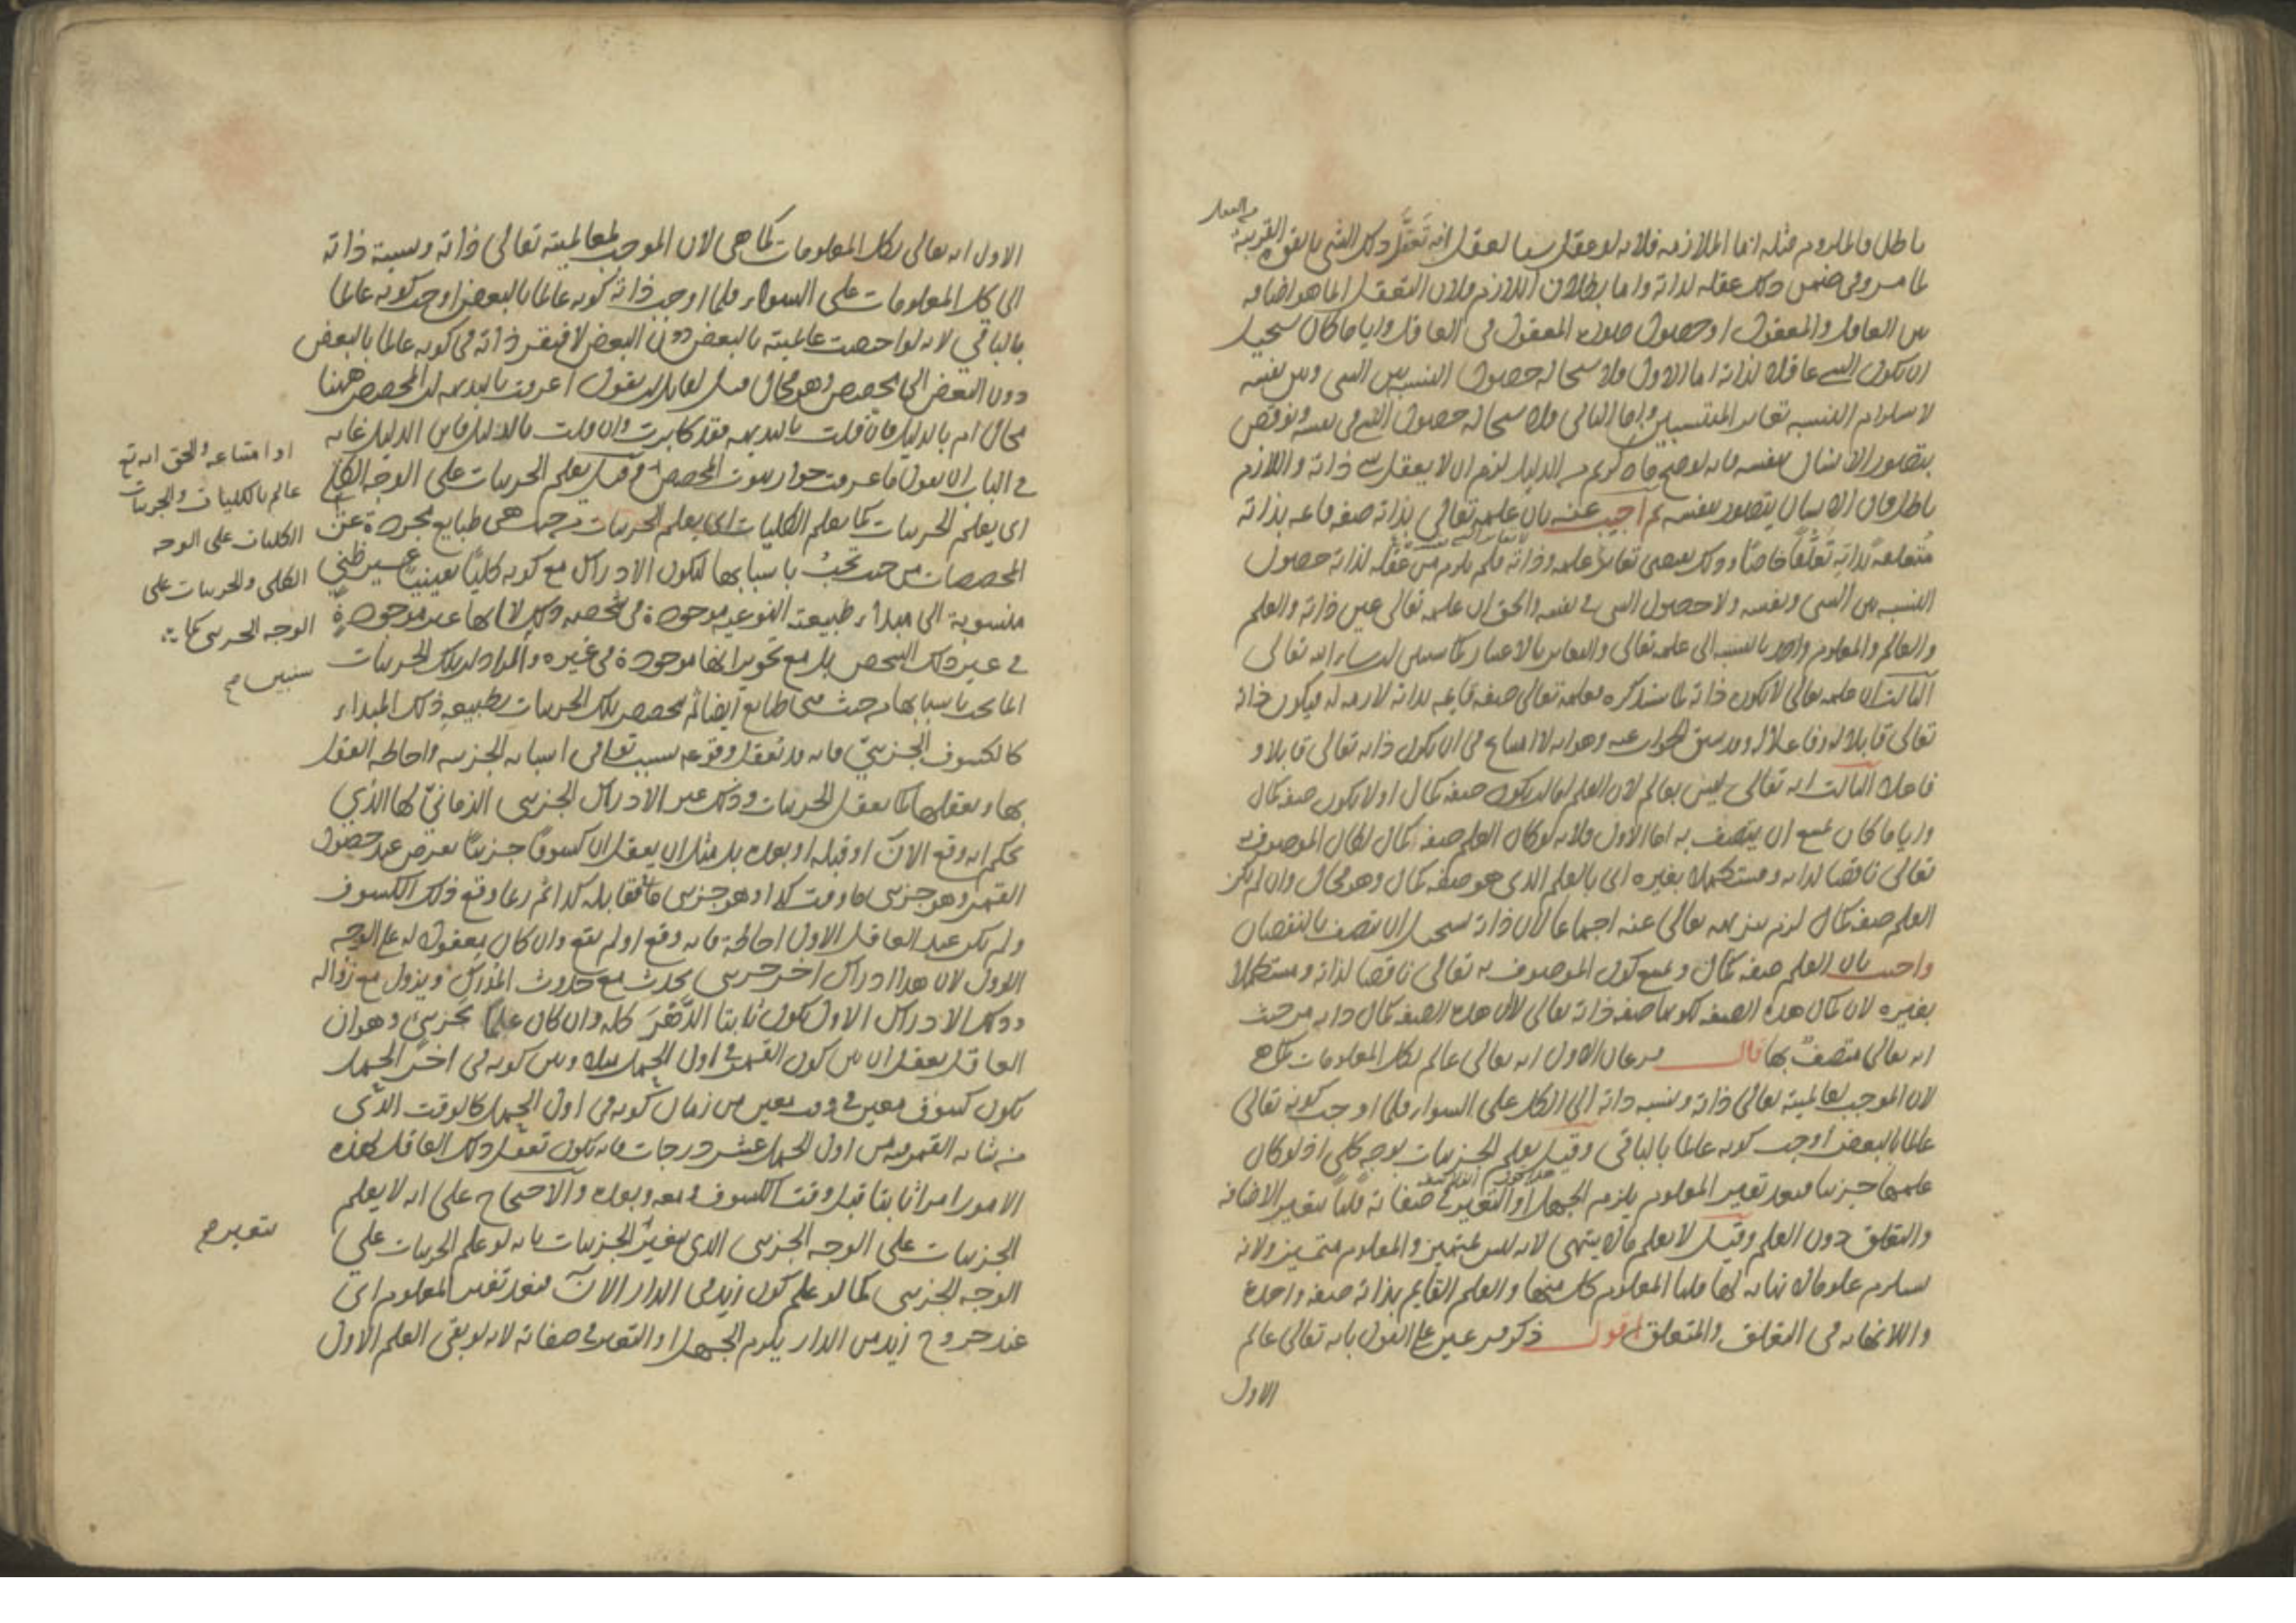 باطل فالملزوم مثله اما الملازمة فلانه لو عقل شيا لعقل انه تعقل ذلك الشي بالقوة القريبة
من الفعل
لما مر وفي ضمن ذلك عقله لذاته واما بطلان اللازم فلان التعقل اما هو اضافة
بين العاقل والمعقول او حصول صورة المعقول في العاقل وايا ما كان يستحيل
ان يكون الشي عاقلا لذاته اما الاول فلاستحالة حصول النسبة بين الشي وبين نفسه
لاستلزام النسبة تغاير المنتسبين واما الثاني فلاستحالة حصول الشي في نفسه ونوقض
بتصور الانسان نفسه فانه لو صح ما ذكرتم من الدليل لزم ان لا يعقل ذاته واللازم
باطل فان الانسان يتصور نفسه ثم اجيب عنه بان علمه تعالى بذاته صفة قائمة بذاته
متعلقة بذاته تعلقا خاصا وذلك يقتضي تغاير علمه وذاته فلم يلزم من عقله لذاته حصول
النسبة بين الشي ونفسه ولا حصول الشي في نفسه والحق ان علمه تعالى عين ذاته والعلم
والعالم والمعلوم واحد بالنسبة الى علمه تعالى والتغاير بالاعتبار كما سنبين ان شاء الله تعالى
الثالث ان علمه تعالى لا يكون ذاته لما سنذكره فعلمه تعالى صفة قائمة بذاته لازمة له فيكون ذاته
تعالى قابلا له وفاعلا له وقد سبق الجواب عنه وهو انه لا امتناع في ان يكون ذاته تعالى قابلا و
فاعلا الثالث انه تعالى ليس بعالم لان العلم اما ان يكون صفة كمال او لا يكون صفة كمال
وايا ما كان يمتنع ان يتصف به اما الاول فلانه لو كان العلم صفة كمال لكان الموصوف به
تعالى ناقصا لذاته ومستكملا بغيره اي بالعلم الذي هو صفة كمال وهو محال وان لم يكن
العلم صفة كمال لزم تنزيهه تعالى عنه اجماعا لان ذاته يستحيل ان يتصف بالنقصان
واجيب بان العلم صفة كمال ويمنع كون الموصوف به تعالى ناقصا لذاته ومستكملا
بغيره لان كمال هذه الصفة لكونها صفة ذاته تعالى لا ان هذه الصفة كمال ذاته من حيث
انه تعالى متصف بها قال فرعان الاول انه تعالى عالم بكل المعلومات كما هي
لان الموجب لعالميته تعالى ذاته ونسبة ذاته الى الكل على السواء فلما اوجب كونه تعالى
عالما بالبعض اوجب كونه عالما بالباقي وقيل يعلم الجزئيات بوجه كلي اذ لو كان
علمها جزئيا فعند تغير المعلوم يلزم الجهل او التغير في صفاته قلنا يتغير الاضافة
والتعلق دون العلم وقيل لا يعلم ما لا يتناهى لانه ليس بمتميز والمعلوم متميز ولانه
يستلزم علوما لا نهاية لها قلنا المعلوم كل منها والعلم القايم بذاته صفة واحدة
واللانهاية في التعلق والمتعلق اقول ذكر فرعين على القول بانه تعالى عالم
الاول
الاول انه تعالى بكل المعلومات كما هي لان الموجب لعالميته تعالى ذاته ونسبة ذاته
الى كل المعلومات على السواء فلما اوجب ذاته كونه عالما بالبعض اوجب كونه عالما
بالباقي لانه لو اختصت عالميته بالبعض دون البعض لافتقر ذاته في كونه عالما بالبعض
دون البعض الى مخصص وهو محال قيل لقايل ان يقول اعرفت بالبديهة ان المخصص ههنا
محال ام بالدليل فان قلت بالبديهة فقد كابرت وان قلت بالدليل فاين الدليل غاية
في الباب ان يقول ما عرفت جواز ثبوت المخصص وقيل يعلم الجزئيات على الوجه الكلي
اي يعلم الجزئيات كما يعلم الكليات اي يعلم الجزئيات من حيث هي طبايع مجردة عن
المخصصات من حيث تجب باسبابها ليكون الادراك مع كونه كليا يقينيا غير ظني
منسوبة الى مبداء طبيعته النوعية موجودة في شخصه ذلك لا انها غير موجودة
في غير ذلك الشخص بل مع تجويز انها موجودة في غيره والمراد ان تلك الجزئيات
انما تجب باسبابها من حيث هي طبايع ايضا ثم تخصص تلك الجزئيات بطبيعة ذلك المبداء
كالكسوف الجزئي فانه قد تعقل وقوعه بسبب توافي اسبابه الجزئية واحاطة العقل
بها وتعقلها كما يعقل الجزئيات وذلك غير الادراك الجزئي الزماني لها الذي
يحكم انه وقع الآن او قبله او بعده بل مثل ان يعقل ان كسوفا جزئيا يعرض عند حصول
القمر وهو جزئي ما وقت كذا وهو جزئي ما في مقابلة كذا ثم ربما وقع ذلك الكسوف
ولم يكن عند العاقل الاول احاطة بانه وقع او لم يقع وان كان معقولا له على الوجه
الاول لان هذا ادراك اخر جزئي يحدث مع حدوث المدرك ويزول مع زواله
وذلك الادراك الاول يكون ثابتا الدهر كله وان كان علما بجزئي وهو ان
العاقل يعقل ان بين كون القمر في اول الحمل مثلا وبين كونه في اخر الحمل
يكون كسوف معين في وقت معين من زمان كونه في اول الحمل كالوقت الذي
من شانه القمر فيه من اول الحمل عشر درجات فانه يكون تعقل ذلك العاقل لهذه
الامور امرا ثابتا قبل وقت الكسوف ومعه وبعده والاحتجاج على انه لا يعلم
الجزئيات على الوجه الجزئي الذي بتغير الجزئيات بانه لو علم الجزئيات على
الوجه الجزئي كما لو علم كون زيد في الدار الآن فعند تغير المعلوم اي
عند خروج زيد من الدار يلزم الجهل او التغير في صفاته لانه لو بقي العلم الاول
او امتناعه والحق انه تع
عالم بالكليات والجزئيات
الكليات على الوجه
الكلي والجزئيات على
الوجه الجزئي كما
سنبين صح
يتغير صح